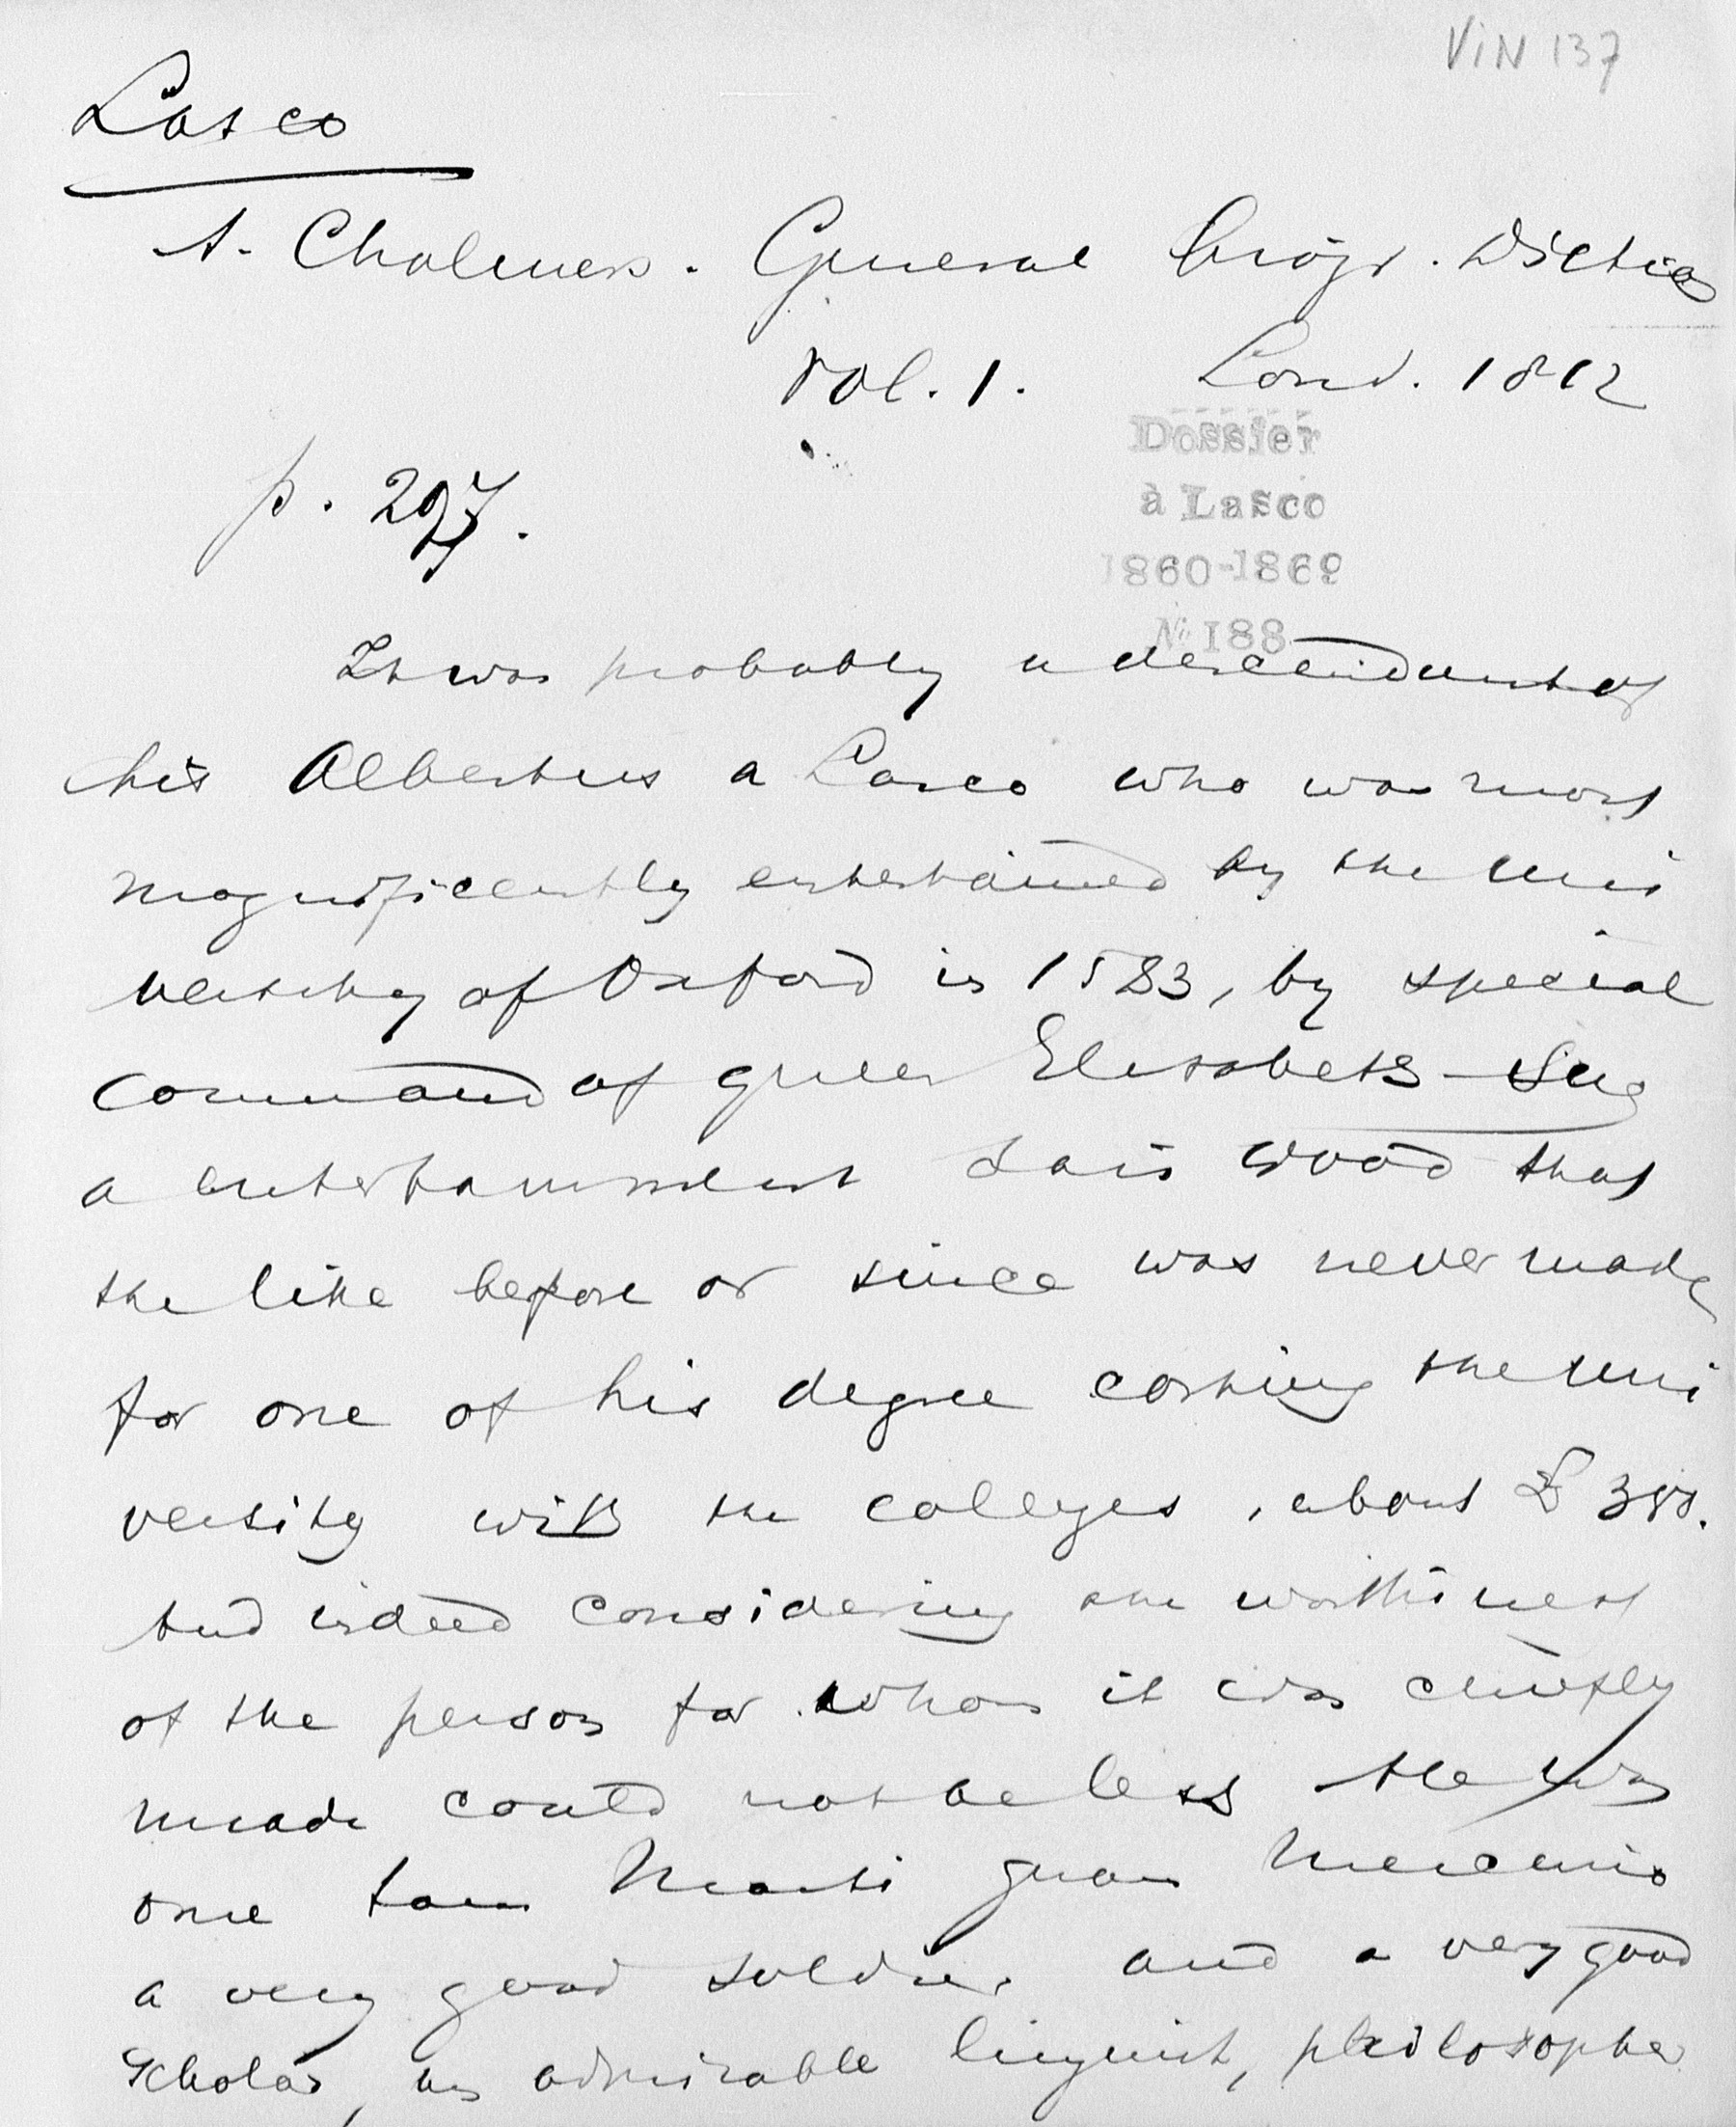 VIN 137
Lasco
A. Chalmers. General biogr. Dictio
Vol. 1. Lond. 1812
p. 297.
Dossier
à Lasco
1860-1869
№ 188
It was probably a descendant of
his Albertus a Lasco who was most
magnificently entertained by the uni
versity of Oxford in 1583, by special
command of queen Elisabeth - Suc
a entertainment sais Wood that
the like before or since was never made
for one of his degree costing the uni
versity with the colleges, about £ 350.
And indeed considering the worthiness
of the person for whom it was chiefly
made could not be less He was
one tam Marti quam Mercurio
a very good soldier and a very good
Scholar, an admirable linguist, philosopher